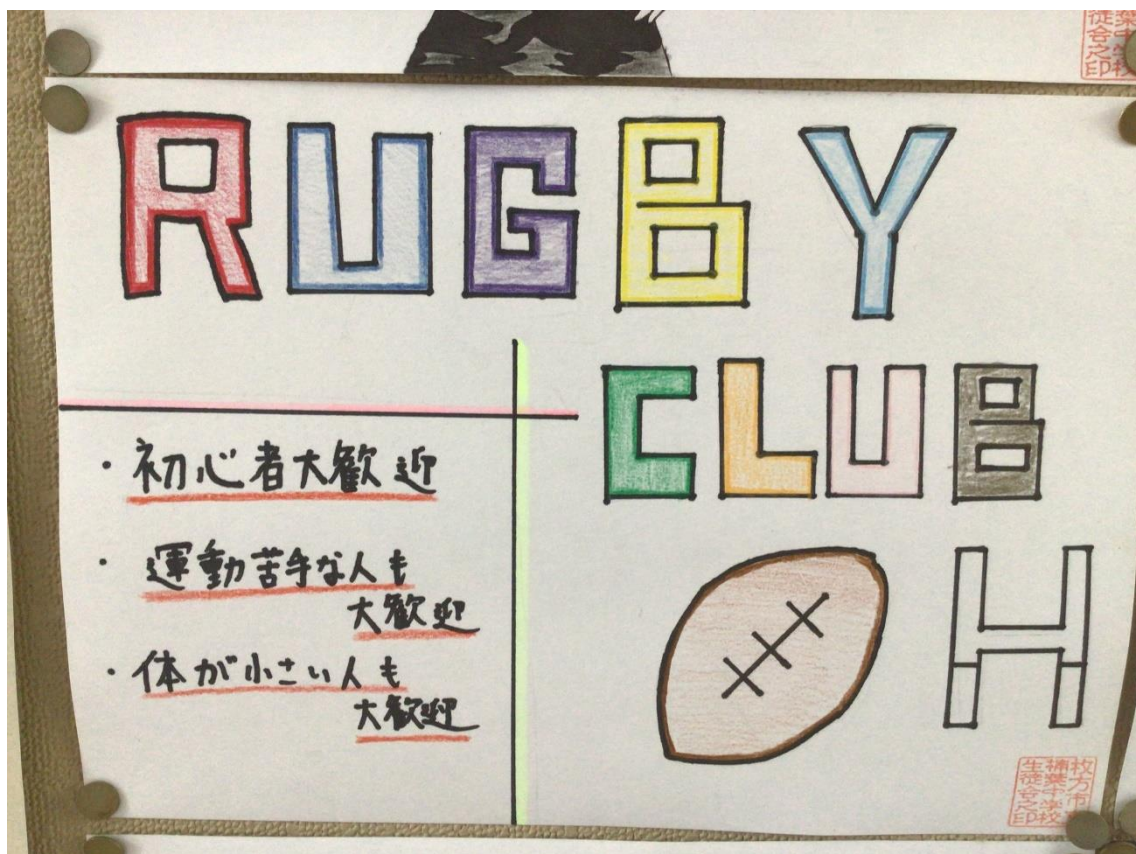 RUGBY
CLUB
・初心者大歓迎
・運動苦手な人も
大歓迎
・体が小さい人も
大歓迎
枚方市立
楠葉中学校
生徒会之印